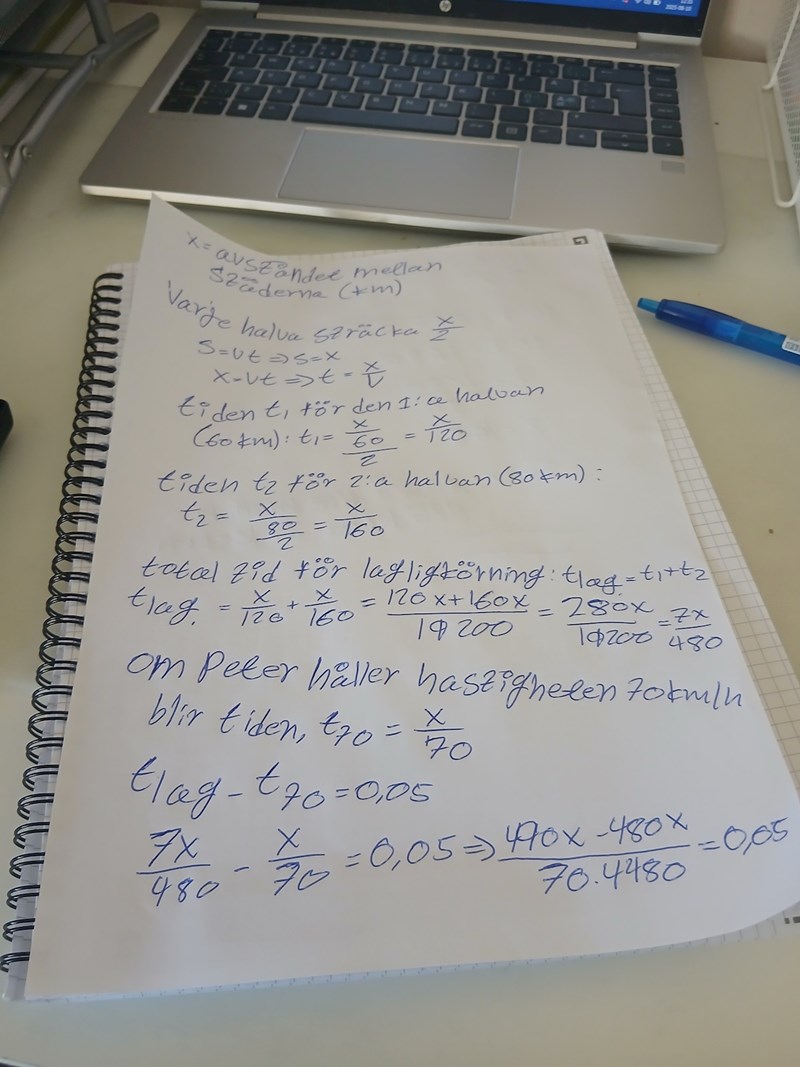 x = avståndet mellan
städerna (km)
Varje halva sträcka x/2
s = vt ⇒ s = x
x = vt ⇒ t = x/v
tiden t₁ för den 1:a halvan
(60 km): t₁ = x/(60/2) = x/120
tiden t₂ för 2:a halvan (80 km):
t₂ = x/(80/2) = x/160
total tid för laglig körning: tlag. = t₁ + t₂
tlag. = x/120 + x/160 = (120x + 160x)/19200 = 280x/19200 = 7x/480
om Peter håller hastigheten 70 km/h
blir tiden, t70 = x/70
tlag - t70 = 0,05
7x/480 - x/70 = 0,05 ⇒ (490x - 480x)/(70.4480) = 0,05